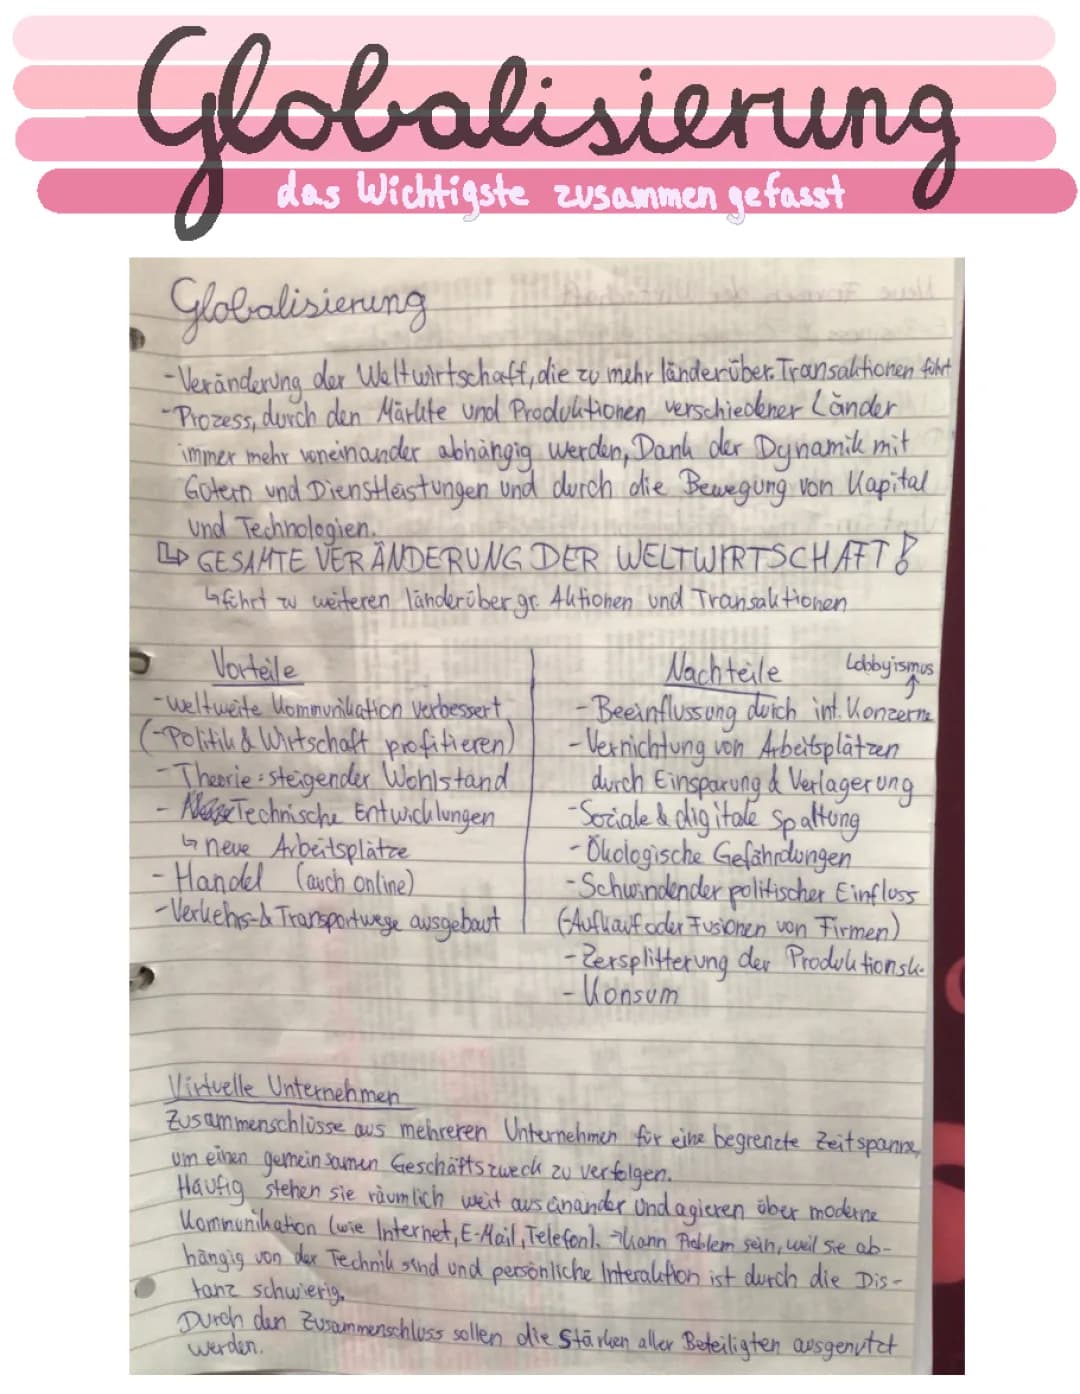 Globalisierung
das Wichtigste zusammengefasst
Globalisierung
- Veränderung der Weltwirtschaft, die zu mehr länderüber. Transaktionen führt
- Prozess, durch den Märkte und Produktionen verschiedener Länder
immer mehr voneinander abhängig werden, Dank der Dynamik mit
Gütern und Dienstleistungen und durch die Bewegung von Kapital
und Technologien.
↳ GESAMTE VERÄNDERUNG DER WELTWIRTSCHAFT!
↳ führt zu weiteren länderübergr. Aktionen und Transaktionen
Vorteile
- weltweite Kommunikation verbessert
(- Politik & Wirtschaft profitieren)
- Theorie: steigender Wohlstand
- Technische Entwicklungen
↳ neue Arbeitsplätze
- Handel (auch online)
- Verkehrs- & Transportwege ausgebaut
Nachteile
Lobbyismus
- Beeinflussung durch int. Konzerne
- Vernichtung von Arbeitsplätzen
durch Einsparung & Verlagerung
- Soziale & digitale Spaltung
- Ökologische Gefährdungen
- Schwindender politischer Einfluss
(- Aufkauf oder Fusionen von Firmen)
- Zersplitterung der Produktionsk.
- Konsum
Virtuelle Unternehmen
Zusammenschlüsse aus mehreren Unternehmen für eine begrenzte Zeitspanne,
um einen gemeinsamen Geschäftszweck zu verfolgen.
Häufig stehen sie räumlich weit auseinander und agieren über moderne
Kommunikation (wie Internet, E-Mail, Telefon). → kann Problem sein, weil sie ab-
hängig von der Technik sind und persönliche Interaktion ist durch die Dis-
tanz schwierig.
Durch den Zusammenschluss sollen die Stärken aller Beteiligten ausgenutzt
werden.